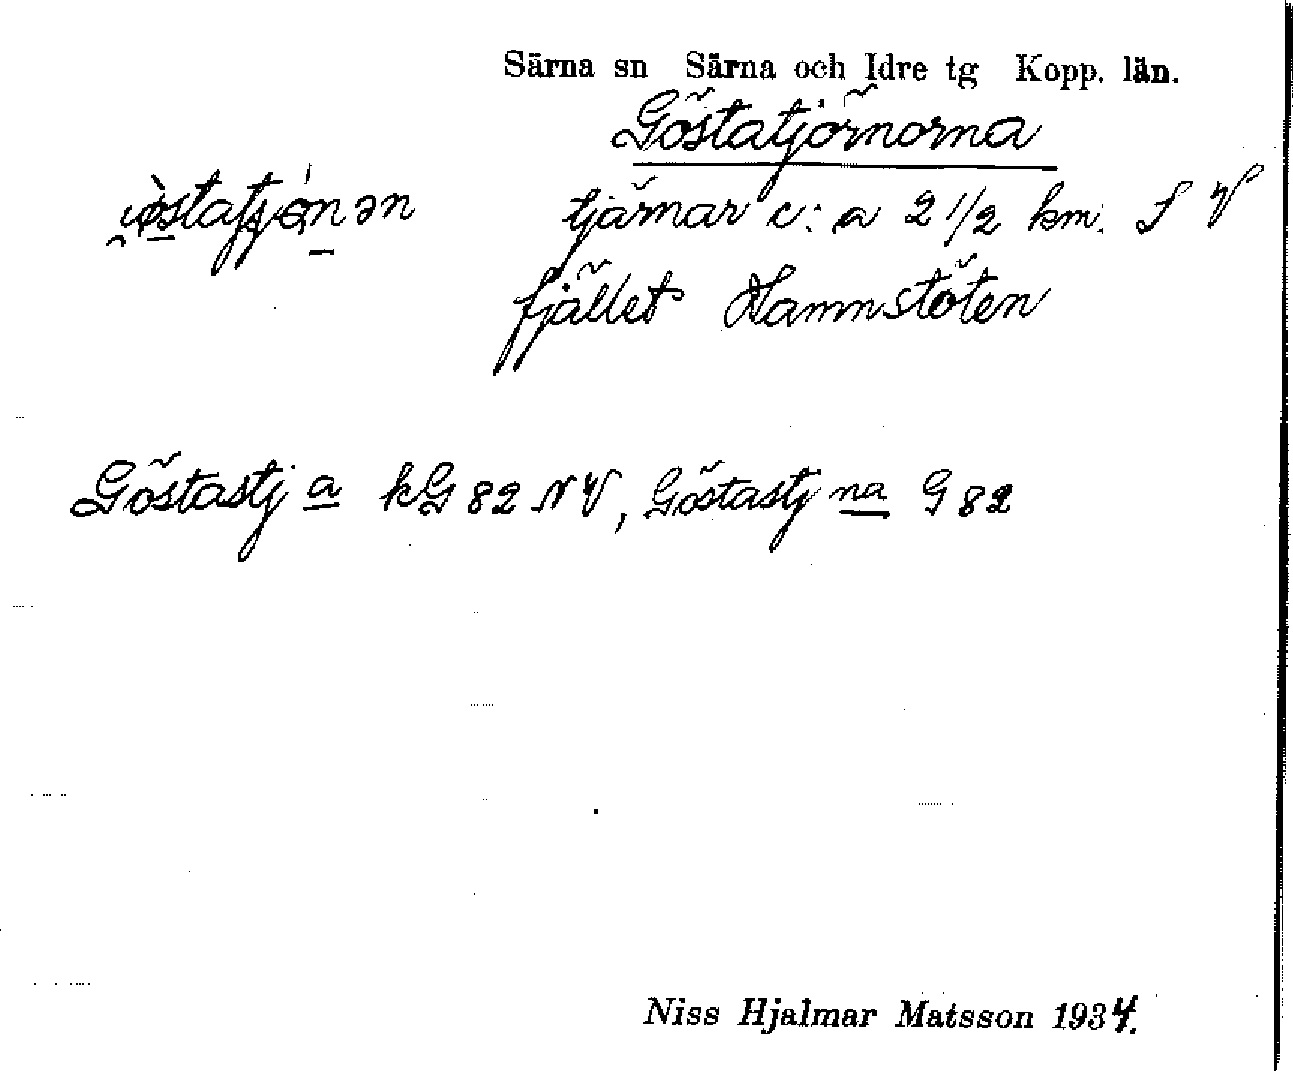 Särna sn Särna och Idre tg Kopp. län.
Göstatjörnorna
tjärnar c:a 2 1/2 km. S V
fjället Hamnstöten
Göstastj a kG 82 NV, Göstastj na G 82
Niss Hjalmar Matsson 1934.